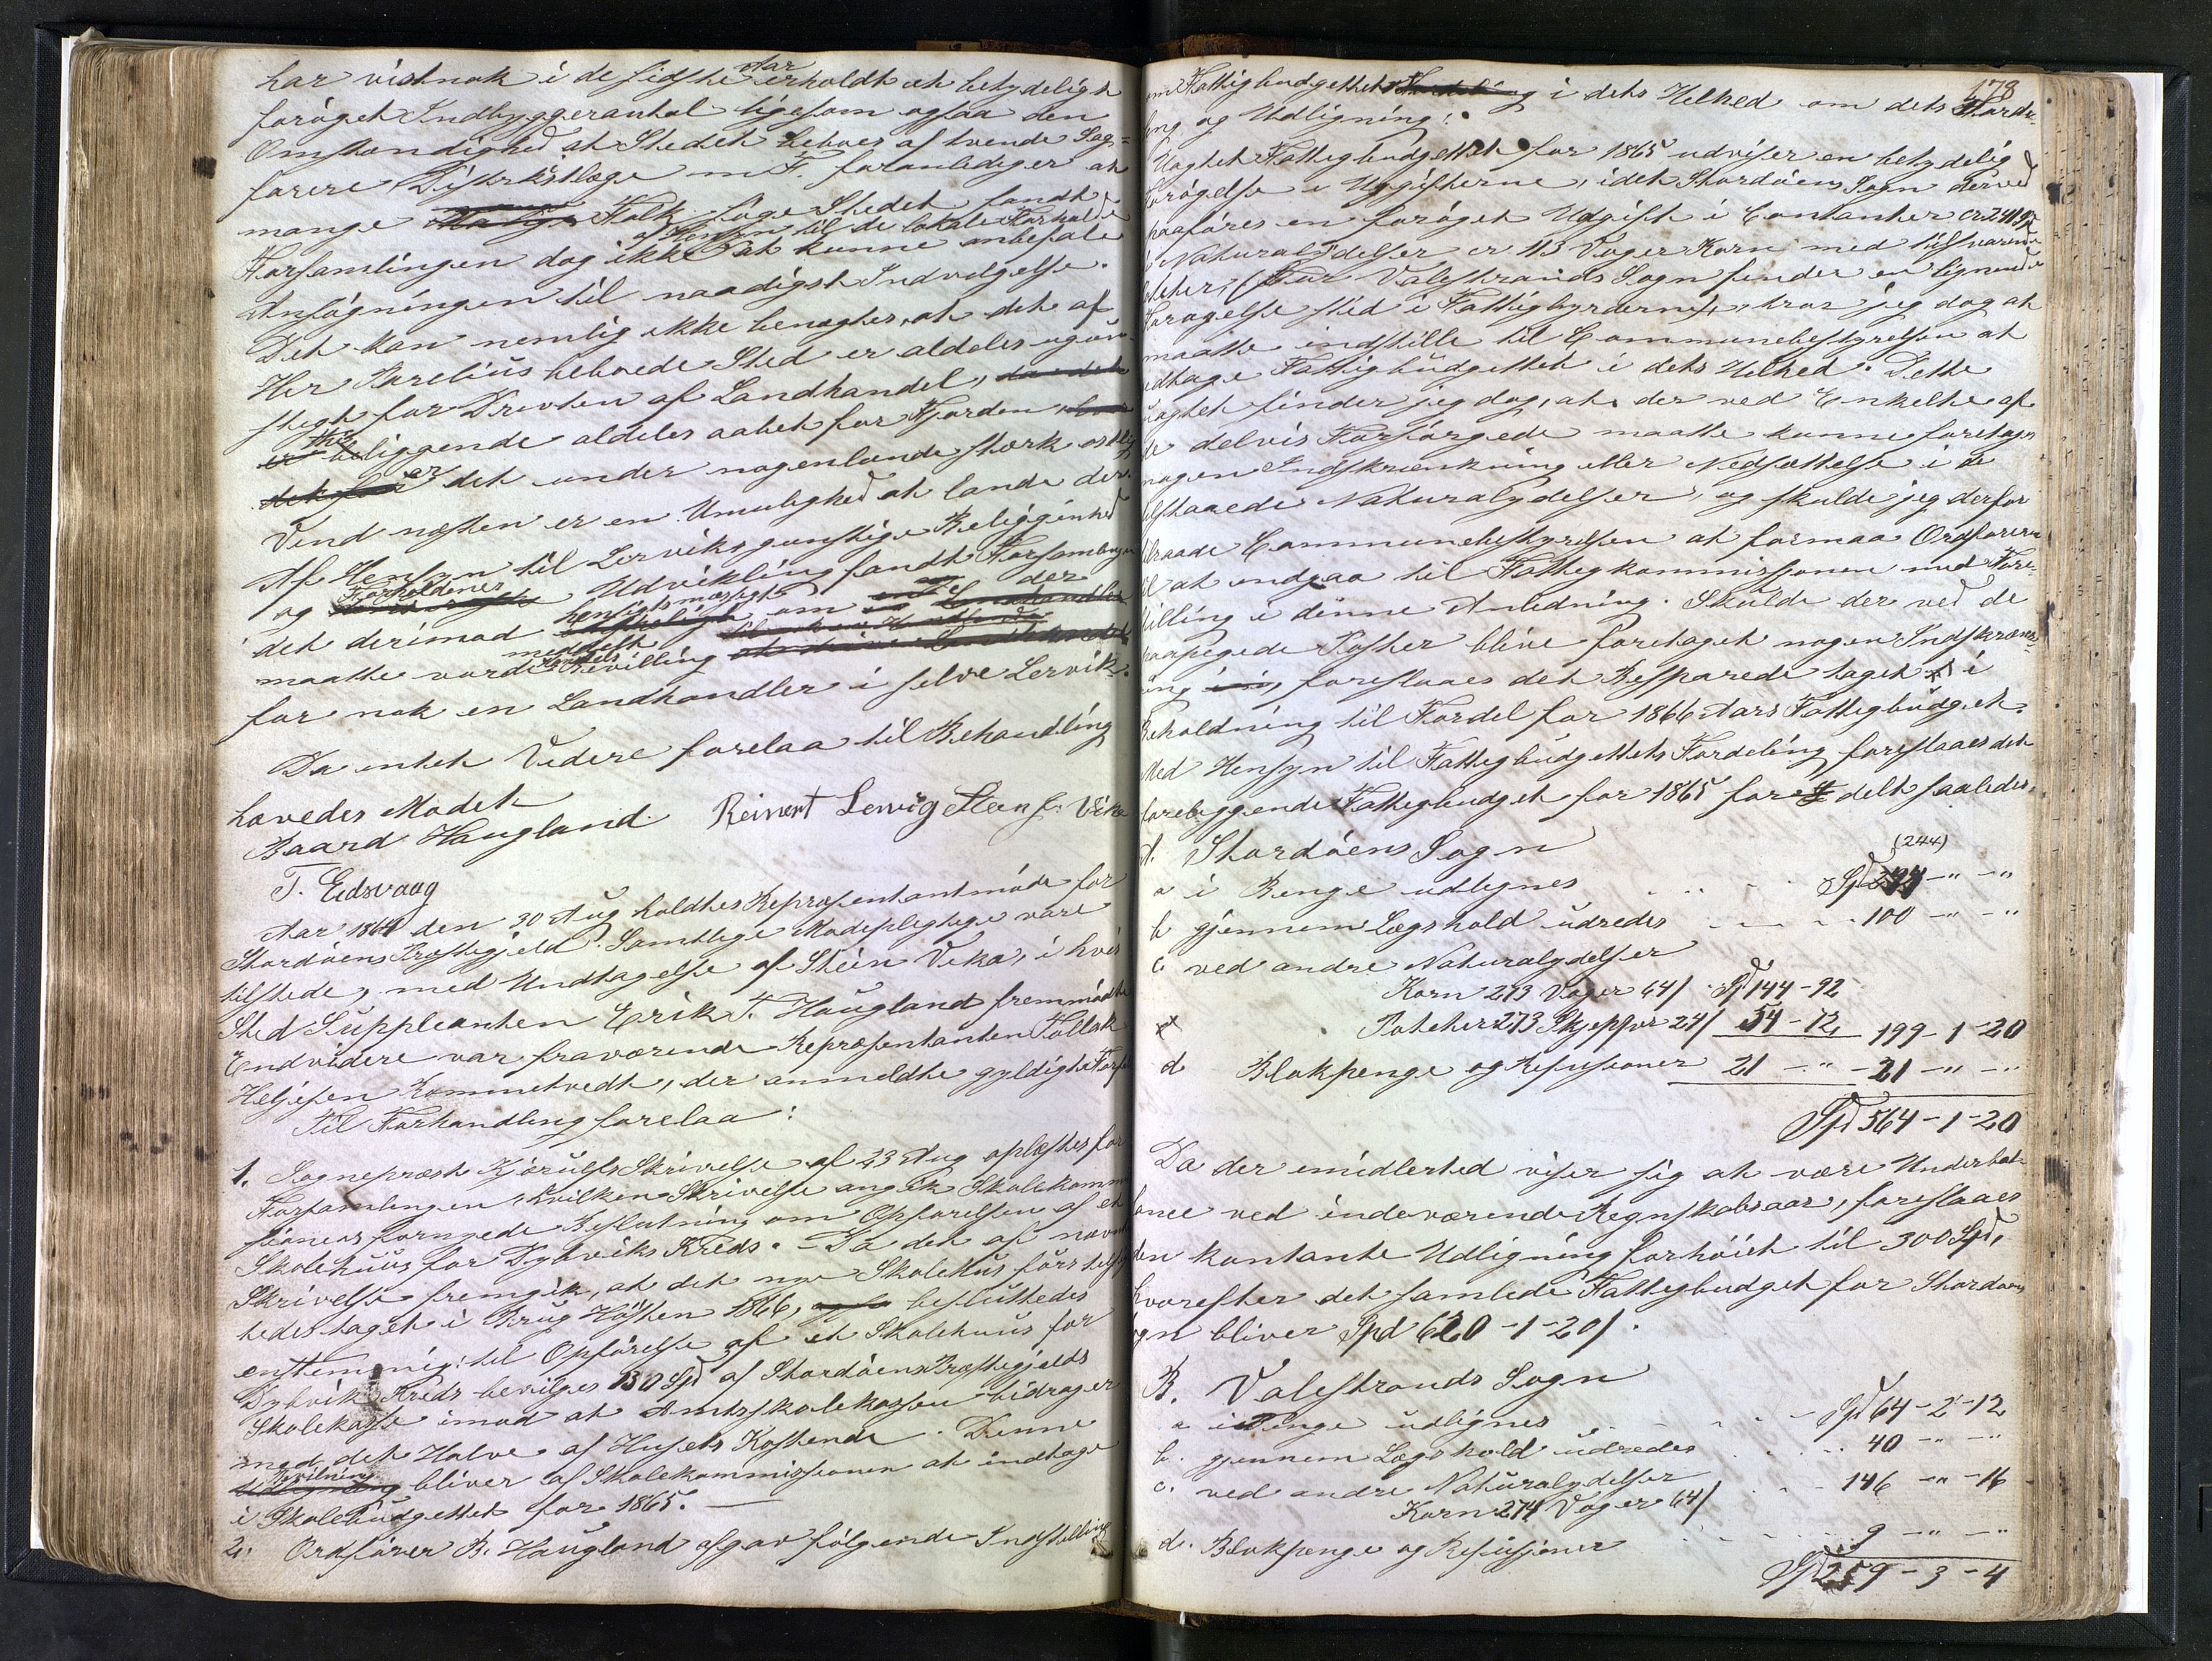 har vistnok i de sidste Aar erholdt et betydeligt
forøget Indbyggerantal ligesom ogsaa den
Omstændighed at Stedet beboes af tvende Sag-
førere, Distriktslæge m. F. foranlediger at
mange Folk søge Stedet fandt
Forsamlingen dog ikke af Hensyn til de lokale Forholde at kunne anbefale
Ansøgningen til naadigst Indvilgelse.
Det kan nemlig ikke benegtes, at det af
Her Aarelius beboede Sted er aldeles ugun-
stigt for Driften af Landhandel,
liggende aldeles aabet for Fjorden
er det under nogenlunde stærk ostlig
Vind næsten er en Umulighed at lande der.
Af Hensyn til Lerviks gunstige Beliggenhed
og Forholdenes Udvikling fandt Forsamlingen
det derimod hensigtsmæssigt om der
maatte vorde meddelt Handels Bevilling
for nok en Landhandler i selve Lervik.
Da intet Videre forelaa til Behandling
hævedes Mødet
Baard Haugland. Reinert Lervig Steen J. Vika
T. Eidsvaag
Aar 1864 den 30 Aug holdtes Repræsentantmøde for
Stordøens Præstegjeld. Samtlige Mødepligtige vare
tilstede, med Undtagelse af Steen Vika, i hvis
Sted Suppleanten Erik T. Haugland fremmødte
Endvidere var fraværende Repræsentanten Tollak
Heljesen Kommetvedt, der anmeldte gyldigt Forfald
Til Forhandling forelaa:
1. Sogneprest Kjerulfs Skrivelse af 23 Aug oplæstes for
Forsamlingen, hvilken Skrivelse angik Skolekommis-
sionens fornyede Beslutning om Opførelsen af et
Skolehuus for Dybviks Kreds. - Da det af nævnte
Skrivelse fremgik, at det nye Skolehus først
tedes taget i Brug Høsten 1866, besluttedes
enstemmig: til Opførelse af et Skolehuus for
Dybvik Kreds bevilges 130 Spd af Stordøens Præstegjelds
Skolekasse imod at Amtsskolekassen bidrager
med det Halve af Husets Kostende. Denne
Bevilgning bliver af Skolekommissionen at indtage
i Skolebudgettet for 1865.
2. Ordfører B. Haugland afgav følgende Indstilling
178
om Fattigbudgettet i dets Helhed om dets Forde-
ling og Udligning:
Uagtet Fattigbudgettet for 1865 udviser en betydelig
Forøgelse i Udgifterne, idet Stordøens Sogn derved
paaføres en forøget Udgift i Contanter
i Naturalydelser er 43 Voger Korn med tilsvarende
Poteter, (For Valestrands Sogn finder en lignende
Forøgelse sted i Fattigbyrderne), tror jeg dog at
maatte indstille til Communebestyrelsen at
vedtage Fattigbudgettet i dets Helhed. Dette
uagtet finder jeg dog, at der ved Enkelte af
de delvis Forsørgede maatte kunne foretages
nogen Indskrænkning eller Nedsættelse i de
tilstaaede Naturalydelser, og skulde jeg derfor
tilraade Communebestyrelsen at formaa Ordføreren
til at indgaa til Fattigkommissionen med Fore-
stilling i denne Anledning. Skulde der ved de
paapegede Poster blive foretaget nogen Indskrænk-
ning, foreslaaes det Besparede taget i
Beholdning til Fordel for 1866 Aars Fattigbudget.
Med Hensyn til Fattigbudgettets Fordeling foreslaaes det
foreliggende Fattigbudget for 1865 fordelt saaledes:
A. Stordøens Sogn
(244)
a i Penge udlignes Spd 244 - " - "
b gjennem Lægshold udredes 100 - " - "
c ved andre Naturalydelser
Korn 273 Voger 64/ Spd 144 - 92
Poteter 273 Skjepper 24/ 54 - 72 199 - 1 - 20
d Blokpenge og Refusioner 21 - " - 21 - " - "
Spd 564 - 1 - 20
Da der imidlertid viser sig at være Underbal-
lance ved indeværende Regnskabsaar, foreslaaes
den kontante Udligning forhøiet til 300 Spd,
hvorefter det samlede Fattigbudget for Stordøens
Sogn bliver Spd 620 - 1 - 20/.
B. Valestrands Sogn
a i Penge udlignes Spd 64 - 2 - 12
b. gjennem Lægshold udredes 40 - " - "
c. ved andre Naturalydelser 146 - " - 16
Korn 274 Voger 64/
d. Blokpenge og Refusjoner 9 - " - "
Spd 259 - 3 - 4